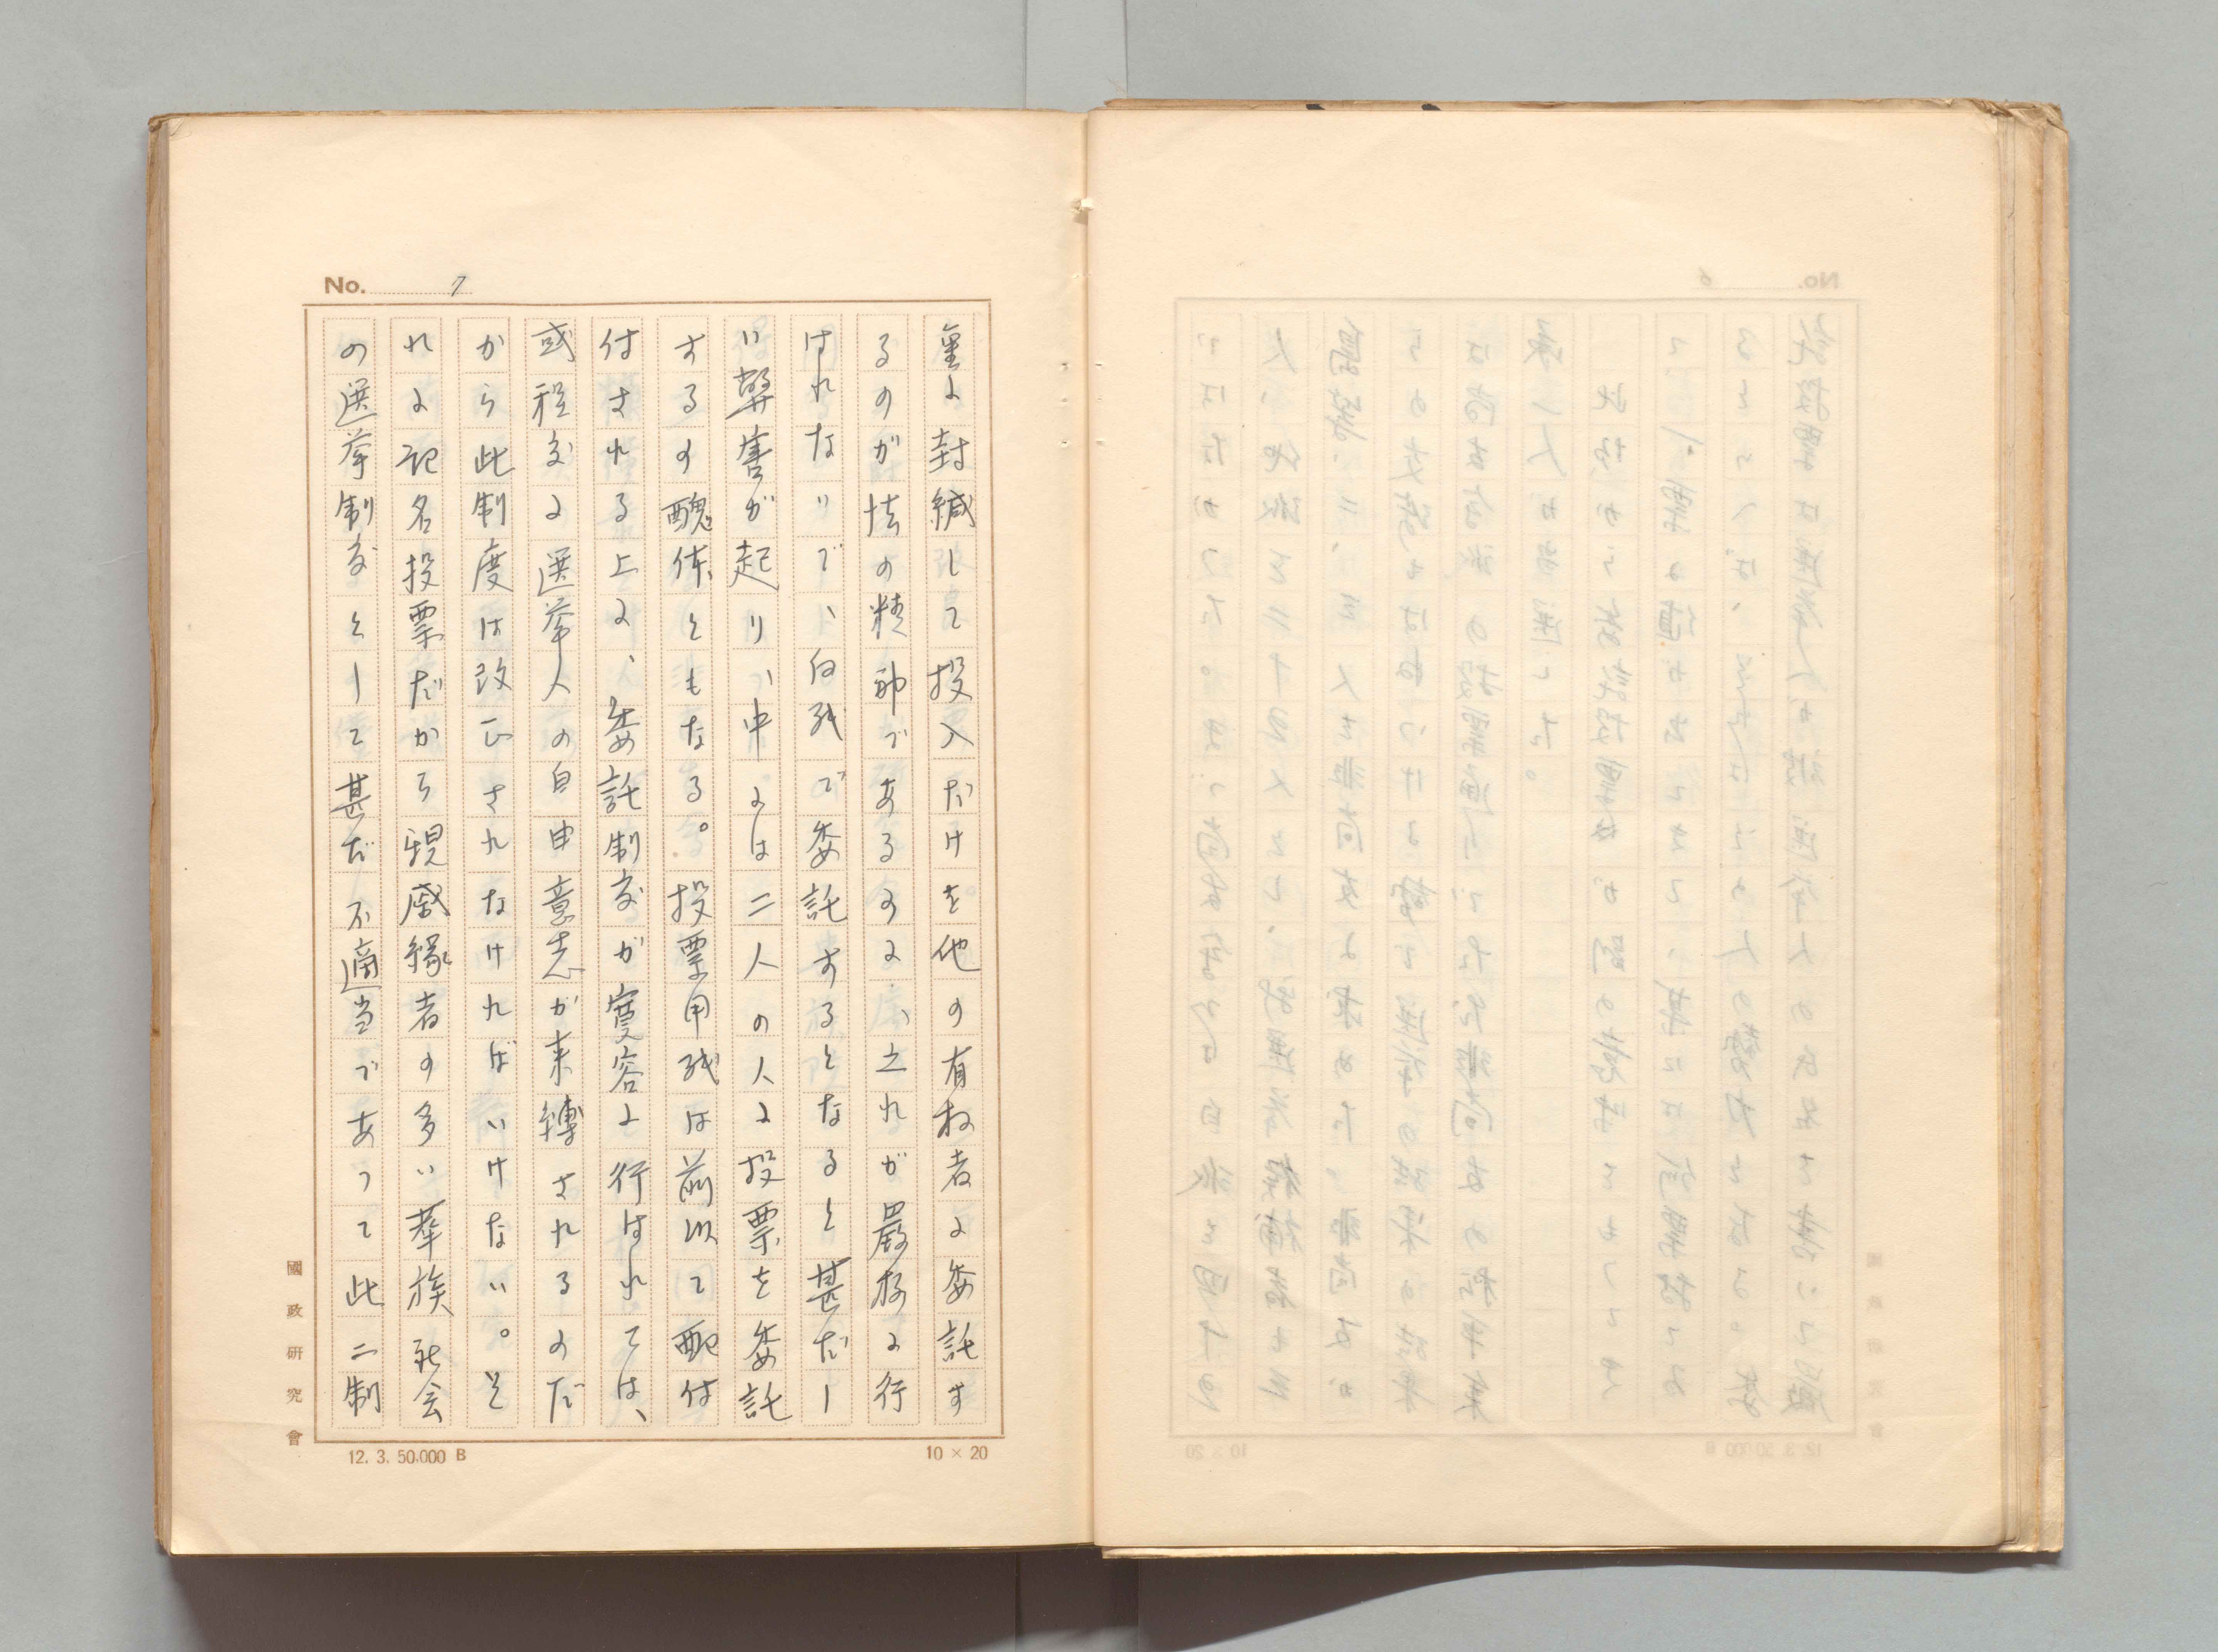 No. 7
重に封緘して投入だけを他の有权者に委託す
るのが法の精神であるのに、之れが嚴格に行
はれないで、白紙で委託するとなると甚だし
い弊害が起り、中には二人の人に投票を委託
するの醜体ともなる。投票用紙は前以て配付
付される上に、委託制度が寛容に行はれては、
或程度に選挙人の自由意志が束縛されるのだ
から此制度は改正されなければいけない。そ
れに記名投票だから親戚縁者の多い華族社会
の選挙制度として甚だ不適当であつて此二制
國政研究會
12. 3. 50,000 B
10 × 20